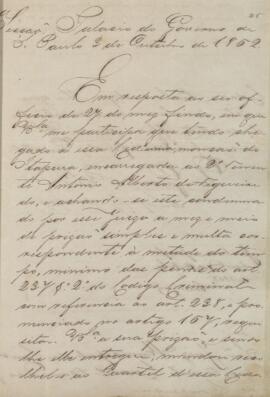 Secção Palacio do Governo de
S. Paulo 3 de Outubro de 1862
Em resposta ao seo of-
ficio de 27 do mez findo, em que
V.Sª me participa que tendo che-
gado a essa
Itapura, encarregado ao 2º Tenen-
te Antonio Alberto de Figueire-
do, e achando-se este condemna-
do por esse juizo a mez e meio
de prizão simples e multa cor-
respondente á metade do tem-
po, minimo das penas do art.
237 § 2º do Codigo Criminal
com referencia ao art. 238, e pro-
nunciado no artigo 167, requi-
sitou V.Sª a sua prizão, e sendo
lhe elle entregue, mandou reco-
lhel-o ao Quartel d'essa